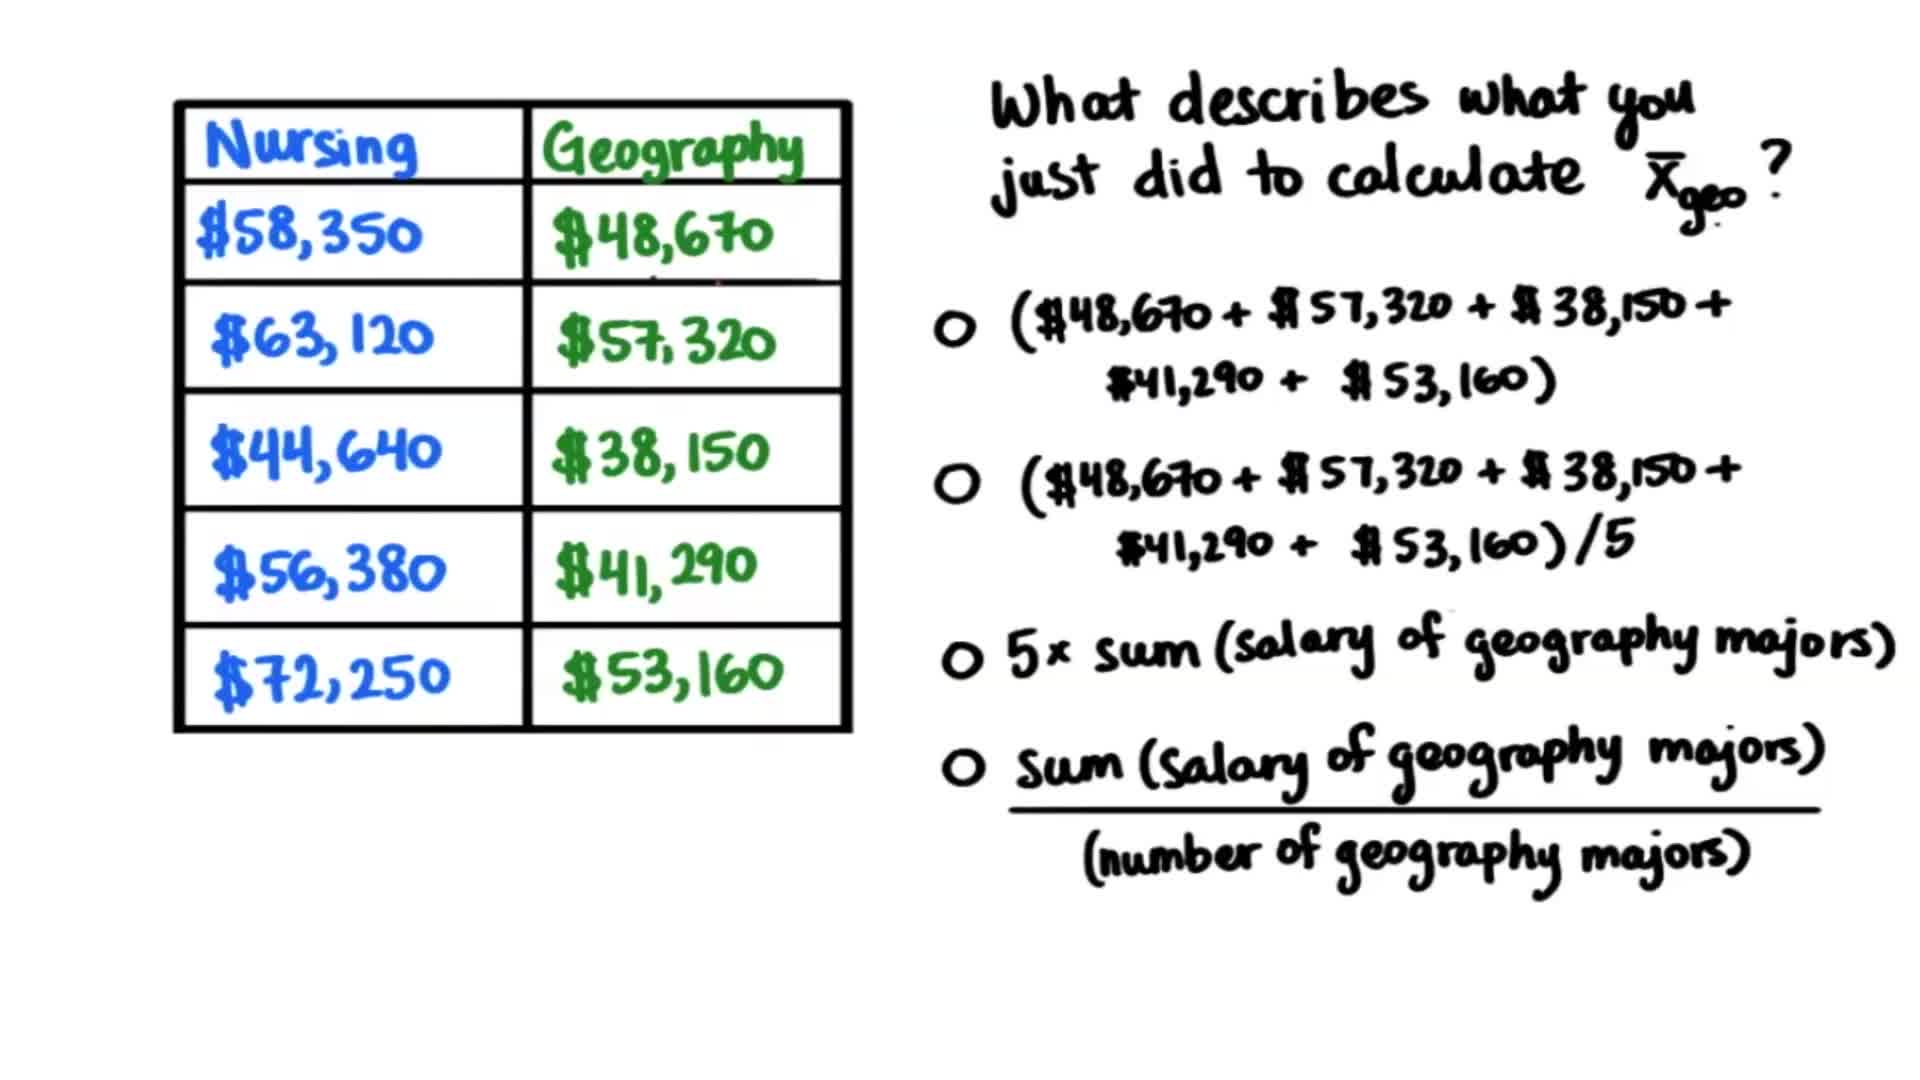 Nursing Geography
$58,350 $48,670
$63,120 $57,320
$44,640 $38,150
$56,380 $41,290
$72,250 $53,160
What describes what you
just did to calculate x̄geo?
O ($48,670 + $57,320 + $38,150 +
$41,290 + $53,160)
O ($48,670 + $57,320 + $38,150 +
$41,290 + $53,160)/5
O 5x sum (salary of geography majors)
O sum (salary of geography majors)
(number of geography majors)